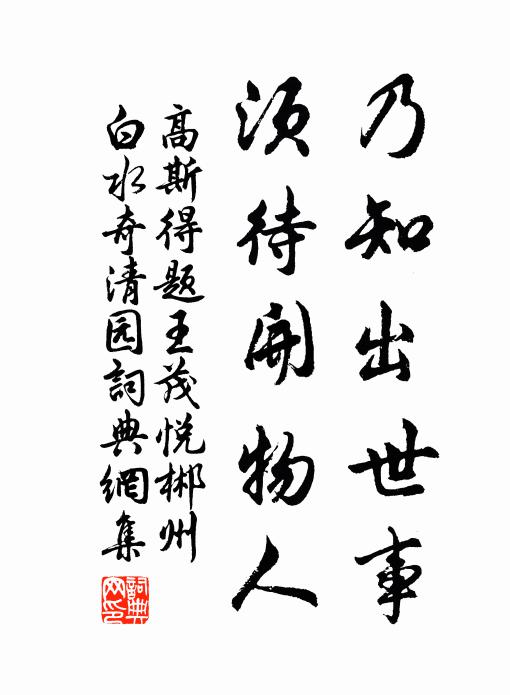 乃知出世事
須待開物人
高斯得題王茂悅郴州
白水奇清园詞典網集
詞典
网印